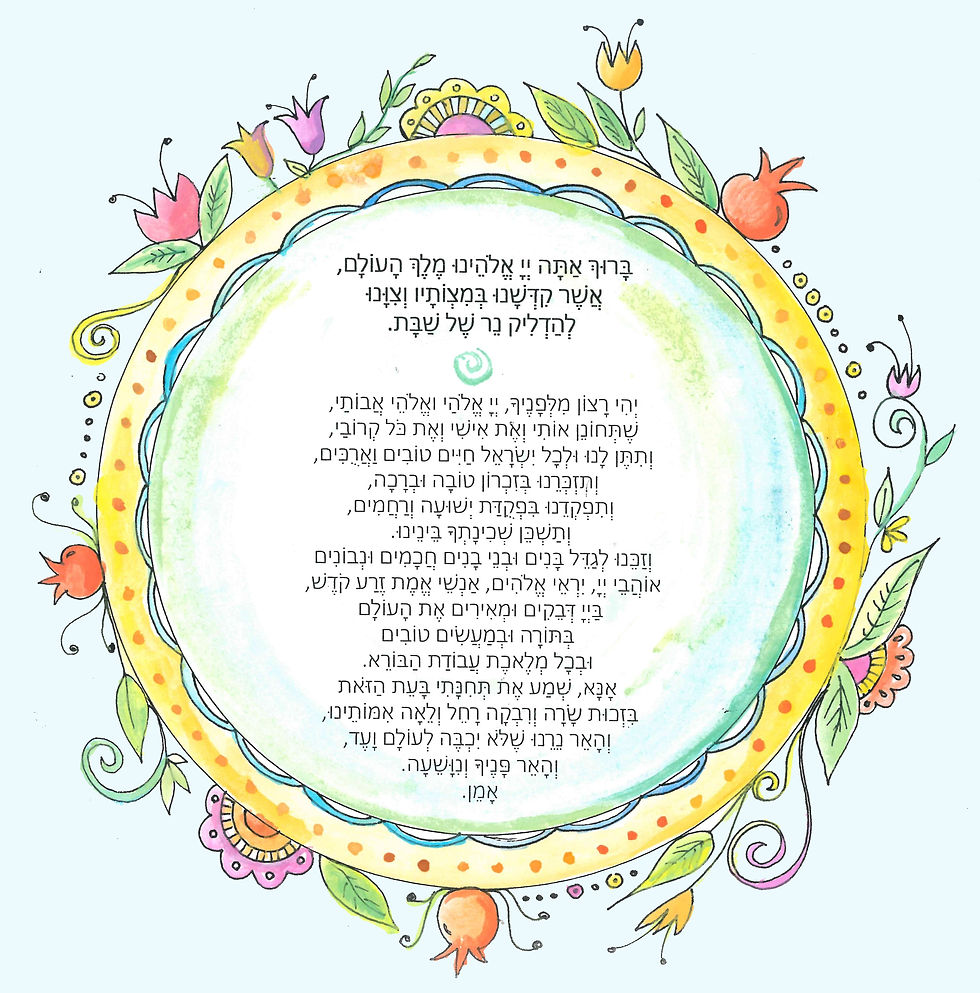 בָּרוּךְ אַתָּה יְיָ אֱלֹהֵינוּ מֶלֶךְ הָעוֹלָם,
אֲשֶׁר קִדְּשָׁנוּ בְּמִצְוֹתָיו וְצִוָּנוּ
לְהַדְלִיק נֵר שֶׁל שַׁבָּת.
יְהִי רָצוֹן מִלְּפָנֶיךָ, יְיָ אֱלֹהַי וֵאלֹהֵי אֲבוֹתַי,
שֶׁתְּחוֹנֵן אוֹתִי וְאֶת אִישִׁי וְאֶת כֹּל קְרוֹבַי,
וְתִתֶּן לָנוּ וּלְכָל יִשְׂרָאֵל חַיִּים טוֹבִים וַאֲרֻכִּים,
וְתִזְכְּרֵנוּ בְּזִכְרוֹן טוֹבָה וּבְרָכָה,
וְתִפְקְדֵנוּ בִּפְקֻדַּת יְשׁוּעָה וְרַחֲמִים,
וְתַשְׁכֵּן שְׁכִינָתְךָ בֵּינֵינוּ.
וְזַכֵּנוּ לְגַדֵּל בָּנִים וּבְנֵי בָנִים חֲכָמִים וּנְבוֹנִים
אוֹהֲבֵי יְיָ, יִרְאֵי אֱלֹהִים, אַנְשֵׁי אֱמֶת זֶרַע קֹדֶשׁ,
בַּייָ דְּבֵקִים וּמְאִירִים אֶת הָעוֹלָם
בְּתּוֹרָה וּבְמַעֲשִׂים טוֹבִים
וּבְכָל מְלֶאכֶת עֲבוֹדַת הַבּוֹרֵא.
אָנָּא, שְׁמַע אֶת תְּחִנָּתִי בָּעֵת הַזֹּאת
בִּזְכוּת שָׂרָה וְרִבְקָה רָחֵל וְלֵאָה אִמּוֹתֵינוּ,
וְהָאֵר נֵרֵנוּ שֶׁלֹּא יִכְבֶּה לְעוֹלָם וָעֶד,
וְהָאֵר פָּנֶיךָ וְנִוָּשֵׁעָה.
אָמֵן.